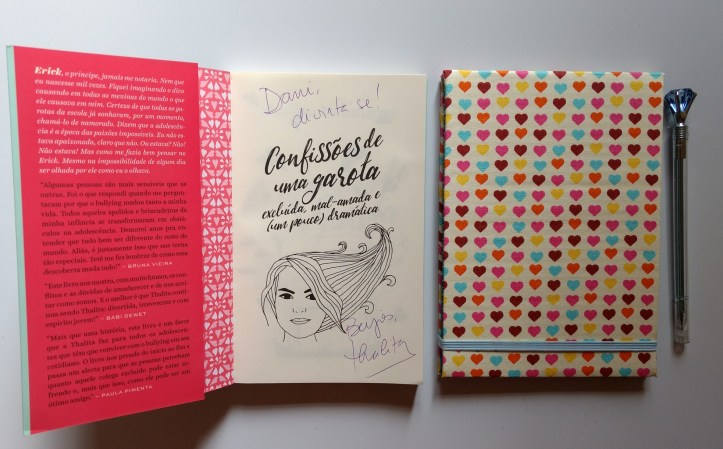 Erick, o príncipe, jamais me notaria. Nem que
eu nascesse mil vezes. Fiquei imaginando o dico
causando em todas as meninas do mundo o que
ele causava em mim. Certeza de que todas as ga-
rotas da escola já sonharam, por um momento,
chamá-lo de namorado. Dizem que a adolescên-
cia é a época das paixões impossíveis. Eu não es-
tava apaixonada, claro que não. Ou estava? Não!
Não estava! Mas como me fazia bem pensar no
Erick. Mesmo na impossibilidade de algum dia
ser olhada por ele como eu o olhava.
"Algumas pessoas são mais sensíveis que as
outras. Foi o que respondi quando me pergun-
taram por que o bullying mudou tanto a minha
vida. Todos aqueles apelidos e brincadeiras da
minha infância se transformaram em obstá-
culos na adolescência. Demorei anos pra en-
tender que tudo bem ser diferente do resto do
mundo. Aliás, é justamente isso que nos torna
tão especiais. Tetê me fez lembrar de como essa
descoberta muda tudo!" – BRUNA VIEIRA
"Este livro nos mostra, com muito humor, os con-
flitos e as dúvidas de amadurecer e de nos acei-
tar como somos. E o melhor é que Thalita conti-
nua sendo Thalita: divertida, irreverente e com
espírito jovem!" – BABI DEWET
"Mais que uma história, este livro é um favor
que a Thalita faz para todos os adolescen-
tes que têm que conviver com o bullying em seu
cotidiano. O livro nos prende do início ao fim e
passa um alerta para que as pessoas percebam
quanto aquele colega excluído pode estar so-
frendo e, mais que isso, como ele pode ser um
ótimo amigo." – PAULA PIMENTA
Dani,
divirta se!
Confissões de
uma garota
excluída, mal-amada e
(um pouco) dramática
Beijos,
thalita